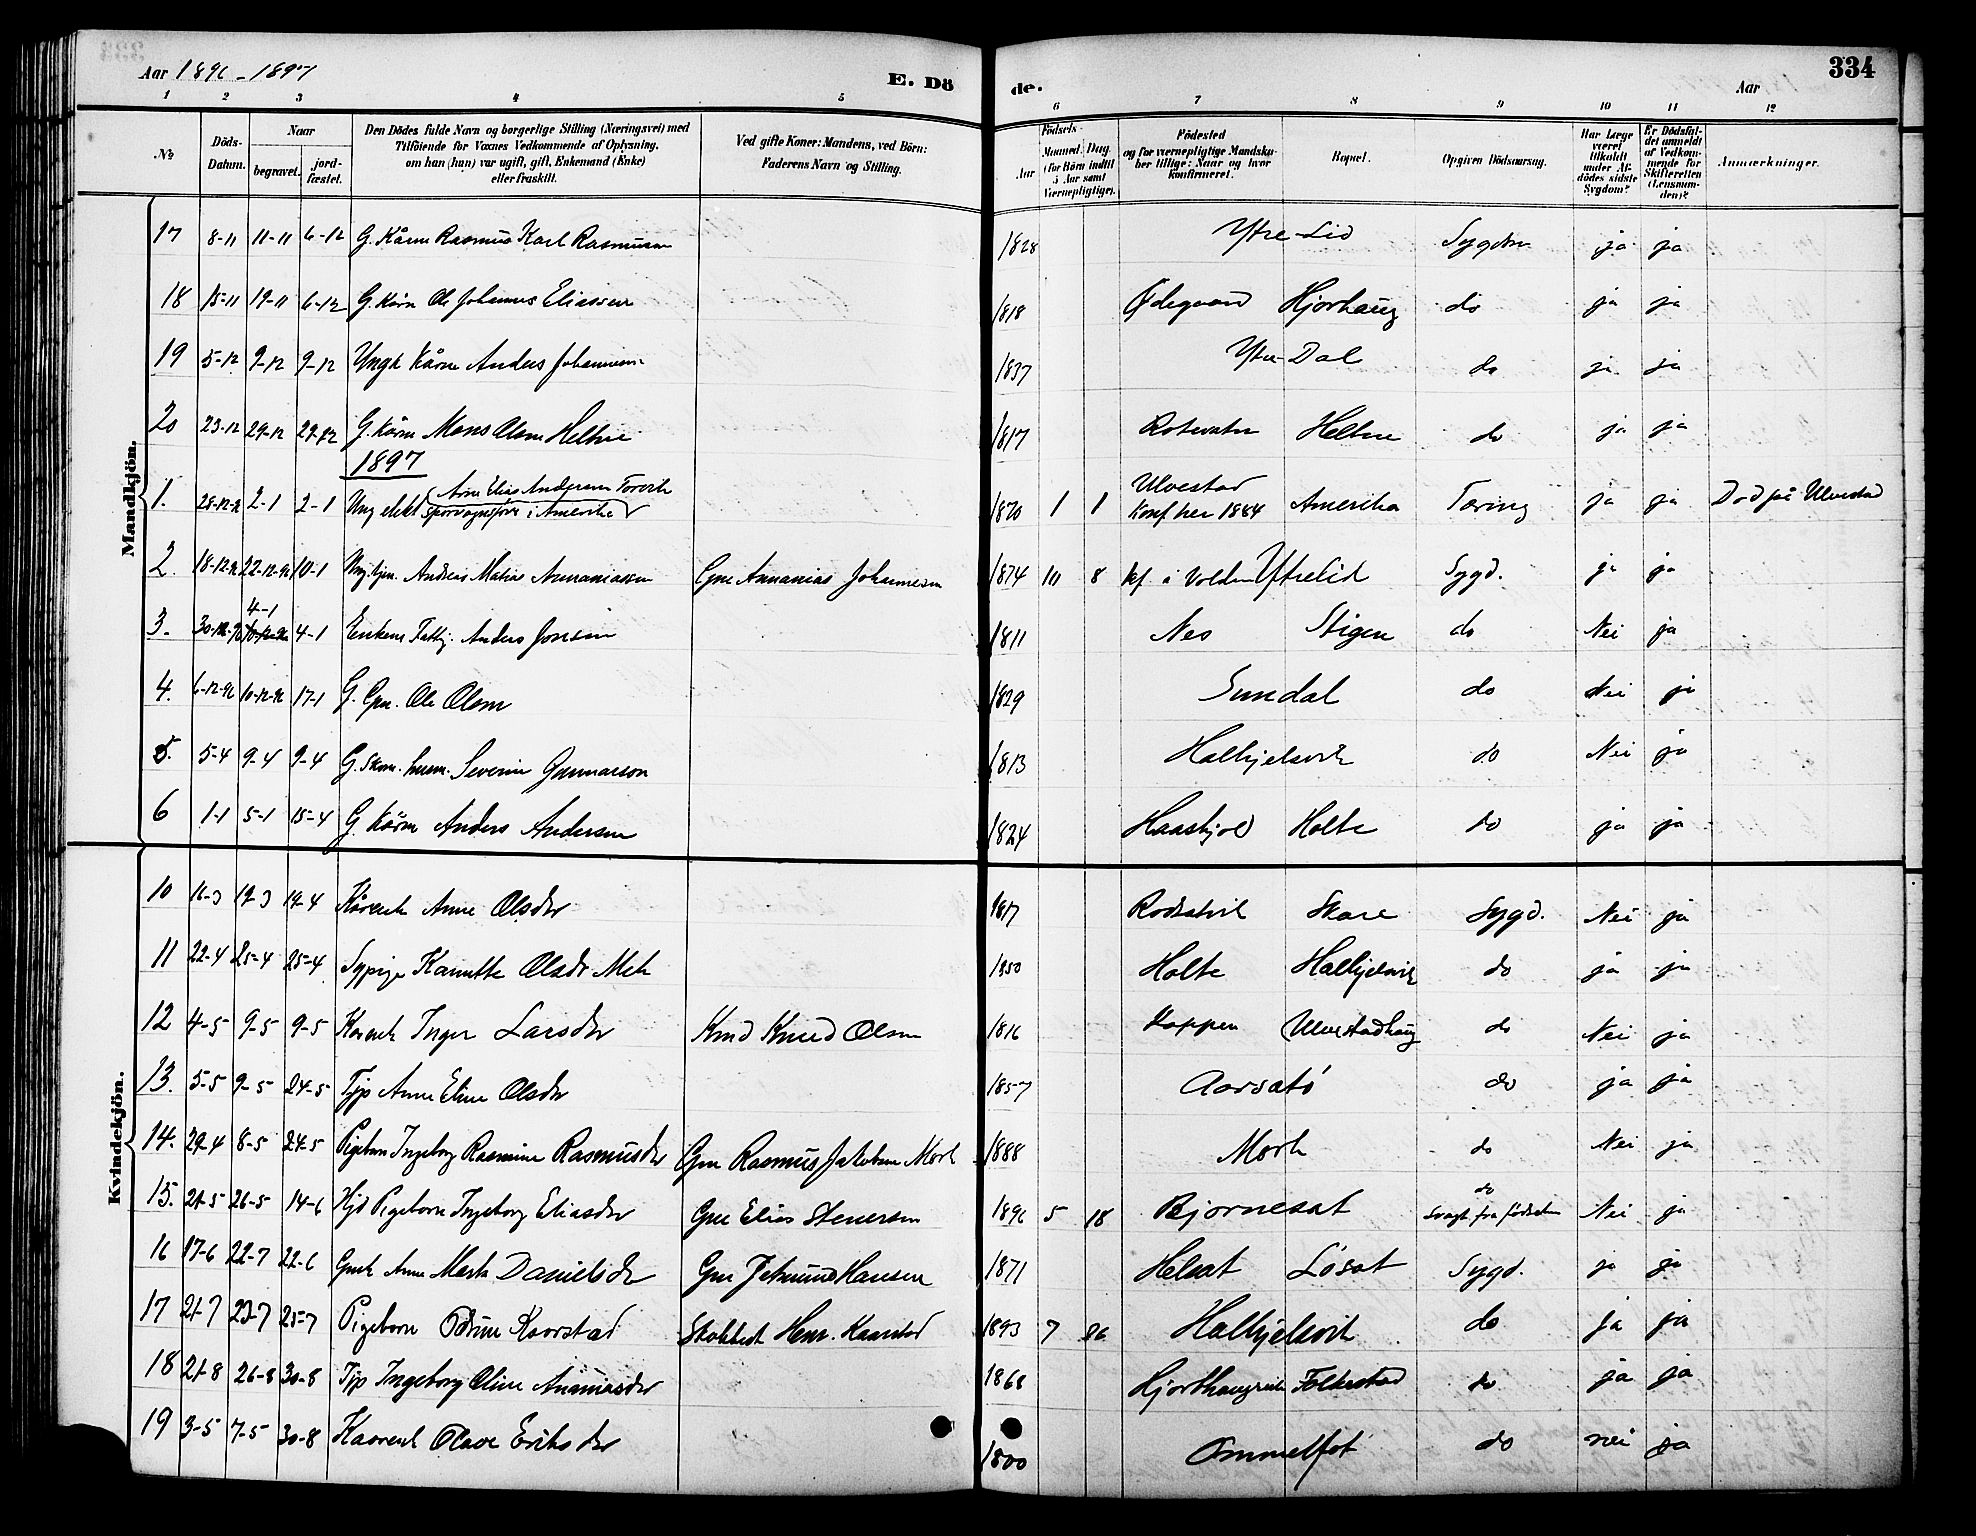 Aar 1896-1897
E. Dö
de.
Aar
334
1 2 3 4 5 6 7 8 9 10 11 12
No
Döds-Datum.
Naar
begravet.
jord-fæstet.
Den Dödes fulde Navn og borgerlige Stilling (Næringsvei) med
Tilföiende for Voxnes Vedkommende af Oplysning,
om han (hun) var ugift, gift, Enkemand (Enke)
eller fraskilt.
Ved gifte Koner: Mandens, ved Börn:
Faderens Navn og Stilling.
Födsels-
Aar
Maaned. Dag.
(for Börn indtil
5 Aar samt
Værnepligtige).
Födested
og for værnepligtige Mandska-
ber tillige: Naar og hvor
konfirmeret.
Bopæl.
Opgiven Dödsaarsag.
Har Læge
været
tilkaldt
under Af-
dödes sidste
Sygdom?
Er Dödsfal-
det anmeldt
af Vedkom-
mende for
Skifteretten
(Lensman-
den)?
Anmærkninger.
Mandkjön.
17 8-11 11-11 6-12 G. Kårm Rasmus Karl Rasmussen 1828 Ytre-Lid Sygdom ja ja
18 15-11 19-11 6-12 G. Kårm Ole Johannes Eliassen 1818 Ødegaard Hjorhaug do ja ja
19 5-12 9-12 9-12 Ungk Kårm Anders Johannesen 1837 Ytre-Dal do ja ja
20 23-12 29-12 29-12 G. Kårm Mons Olsen Heltne 1817 Rotevatn Heltne do ja ja
1897
1. 28-12-96 2-1 2-1 Ungk Arne Elias Andersen Torvik sporvognsfører i Amerika 1870 1 1 Ulvestad Konf. her 1884 Amerika Tæring ja ja Død på Ulvestad
2. 18-12-96 22-12-96 10-1 Ungkm. Andreas Matias Ananiassen Gm Annanias Johannesen 1874 10 8 kf. i Volden Ytrelid Sygd. ja ja
3. 30-12-96 4-1 4-1 Enkem Fattig. Anders Jonsen 1811 Nes Stigen do Nei ja
4. 6-12-96 10-12-96 17-1 G. Gm. Ole Olsen 1829 Sundal do Nei ja
5. 5-4 9-4 9-4 G. Skom. husm. Severin Gunnarson 1813 Halkjelsvik do Nei ja
6 1-1 5-1 15-4 G Kårm Anders Andersen 1824 Haaskjold Holte do ja ja
Kvindekjön.
10 16-3 19-3 19-4 Kårenk Anne Olsdr 1817 Rodsetvik Skare Sygd. Nei ja
11 22-4 25-4 25-4 Sypige Kanutte Olsdr Mek 1850 Holte Halkjelsvik do ja ja
12 4-5 9-5 9-5 Kårenk Inger Larsdr Kmd Knud Olsen 1816 Koppen Ulvestadhaug do Nei ja
13. 5-5 9-5 24-5 Tjp Anne Eline Olsdr 1857 Aarsetö do ja ja
14. 29-4 8-5 24-5 Pigebarn Ingeborg Rasmine Rasmusdr Gm Rasmus Jakobsen Mork 1888 Mork do Nei ja
15. 21-5 26-5 14-6 Hjd Pigebarn Ingeborg Eliasdr Gm Elias Stenersen 1896 5 18 Bjorneset do Svagt fra Födselen Nei ja
16 17-6 22-7 22-6 Gmk Anne Marta Danielsdr Gm Jetmund Hansen 1871 Helset Löset Sygd. ja ja
17 21-7 23-7 25-7 Pigebarn Odrine Kaarstad Henr. Kaarstad 1893 7 26 Halkjelsvik do ja ja
18 21-8 26-8 30-8 Tjp Ingeborg Oline Ananiasdr 1868 Folkestad do ja ja
19 3-5 7-5 30-8 Kaarenk Olave Eriksdr 1800 Ommelfot do nei ja